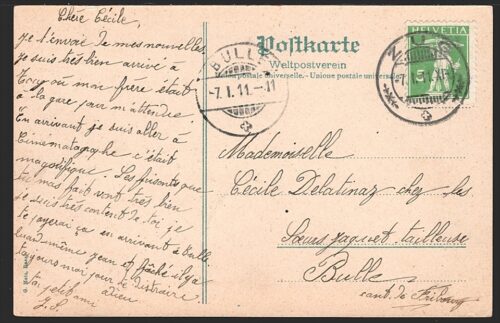 Chère Cécile
Je t'envoie de mes nouvelles,
je suis très bien arrivé à
Zoug où mon frère était
à la gare pour m'attendre.
En arrivant je suis aller à
Cinématographe c'était
magnifique. Les frisonts que
tu m'as fait vont très bien
je suis très content de toi, je
te payerai ça en arrivant à Bulle
quand-même Jean est fâché il y a
toujours moi pour te distraire
ton petit ami adieu
J.S.
Postkarte
Weltpostverein
postale universelle. - Unione postale universale
BULLE
-7.I.11.-11
ZUG
HELVETIA
5
Mademoiselle
Cécile Delatinaz chez les
Sœurs Jaquet tailleuse
Bulle
cant. de Fribourg